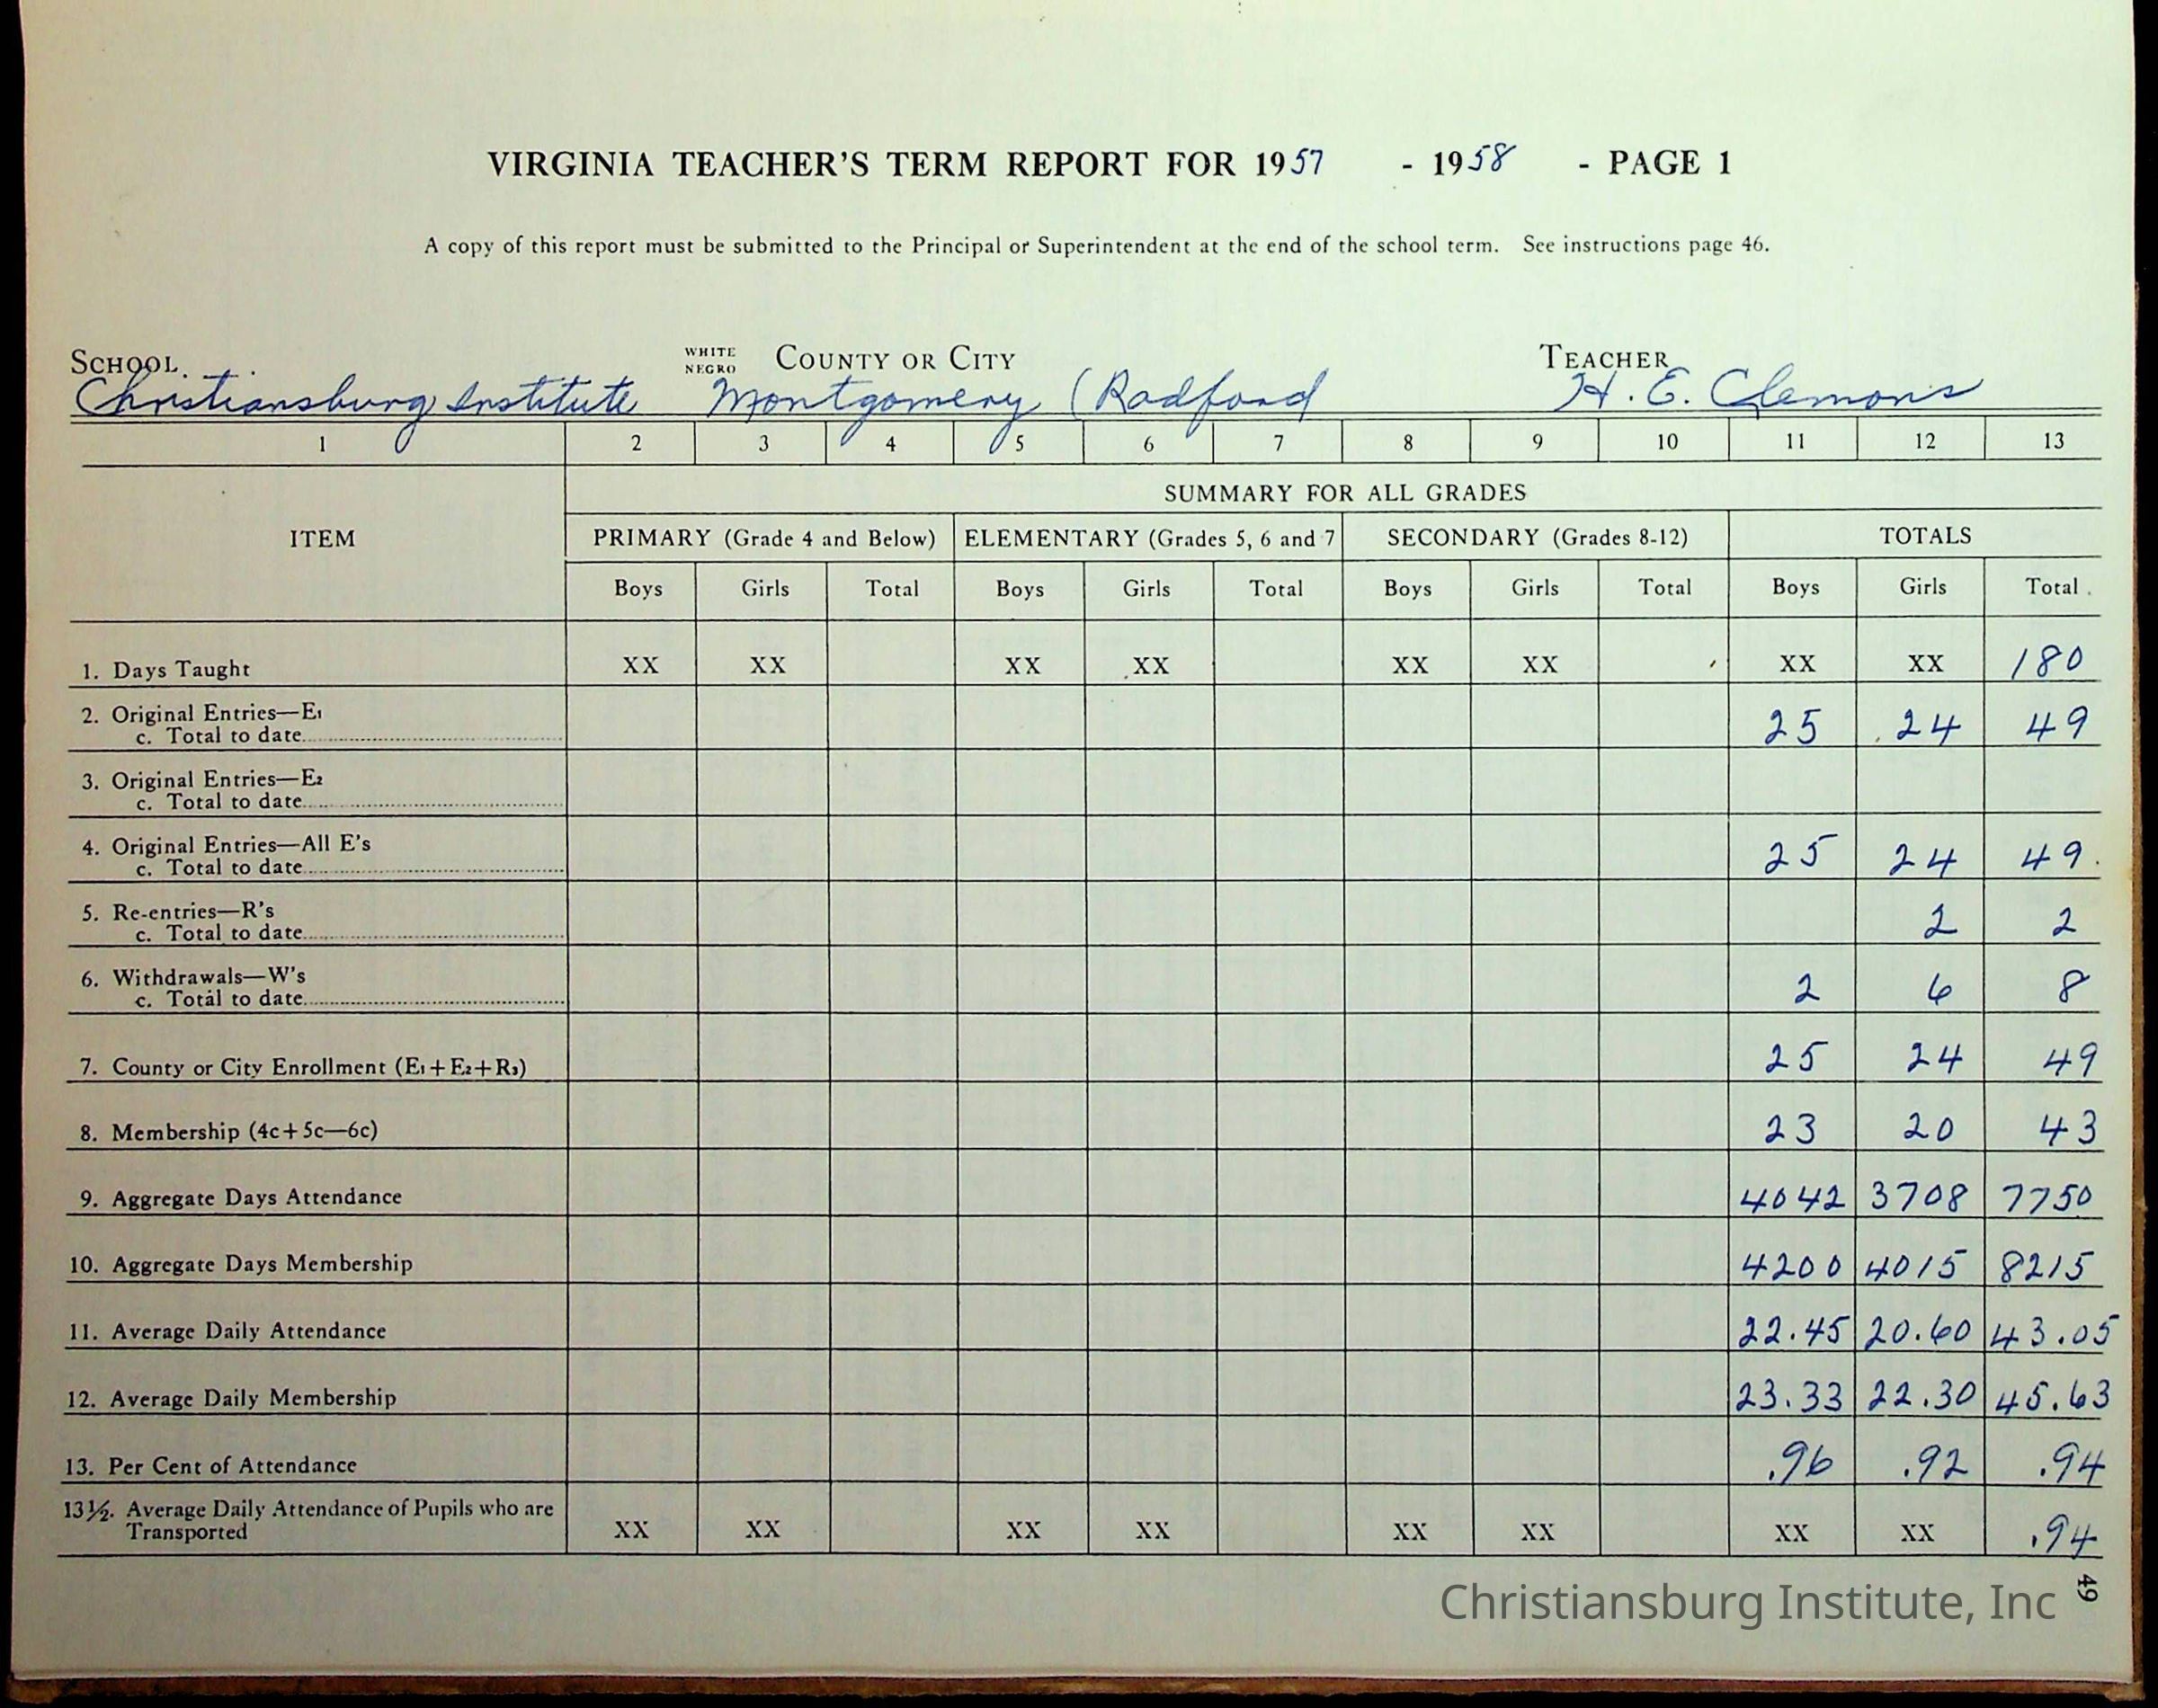 VIRGINIA TEACHER'S TERM REPORT FOR 1957 - 1958 - PAGE 1
A copy of this report must be submitted to the Principal or Superintendent at the end of the school term. See instructions page 46.
SCHOOL WHITE NEGRO COUNTY OR CITY TEACHER
Christiansburg Institute Montgomery (Radford H. E. Clemons
1 2 3 4 5 6 7 8 9 10 11 12 13
SUMMARY FOR ALL GRADES
ITEM PRIMARY (Grade 4 and Below) ELEMENTARY (Grades 5, 6 and 7 SECONDARY (Grades 8-12) TOTALS
Boys Girls Total Boys Girls Total Boys Girls Total Boys Girls Total
1. Days Taught XX XX XX XX XX XX XX XX 180
2. Original Entries—E1
c. Total to date 25 24 49
3. Original Entries—E2
c. Total to date
4. Original Entries—All E's
c. Total to date 25 24 49
5. Re-entries—R's
c. Total to date 2 2
6. Withdrawals—W's
c. Total to date 2 6 8
7. County or City Enrollment (E1+E2+R3) 25 24 49
8. Membership (4c+5c—6c) 23 20 43
9. Aggregate Days Attendance 4042 3708 7750
10. Aggregate Days Membership 4200 4015 8215
11. Average Daily Attendance 22.45 20.60 43.05
12. Average Daily Membership 23.33 22.30 45.63
13. Per Cent of Attendance .96 .92 .94
13½. Average Daily Attendance of Pupils who are
Transported XX XX XX XX XX XX XX XX .94
49
Christiansburg Institute, Inc